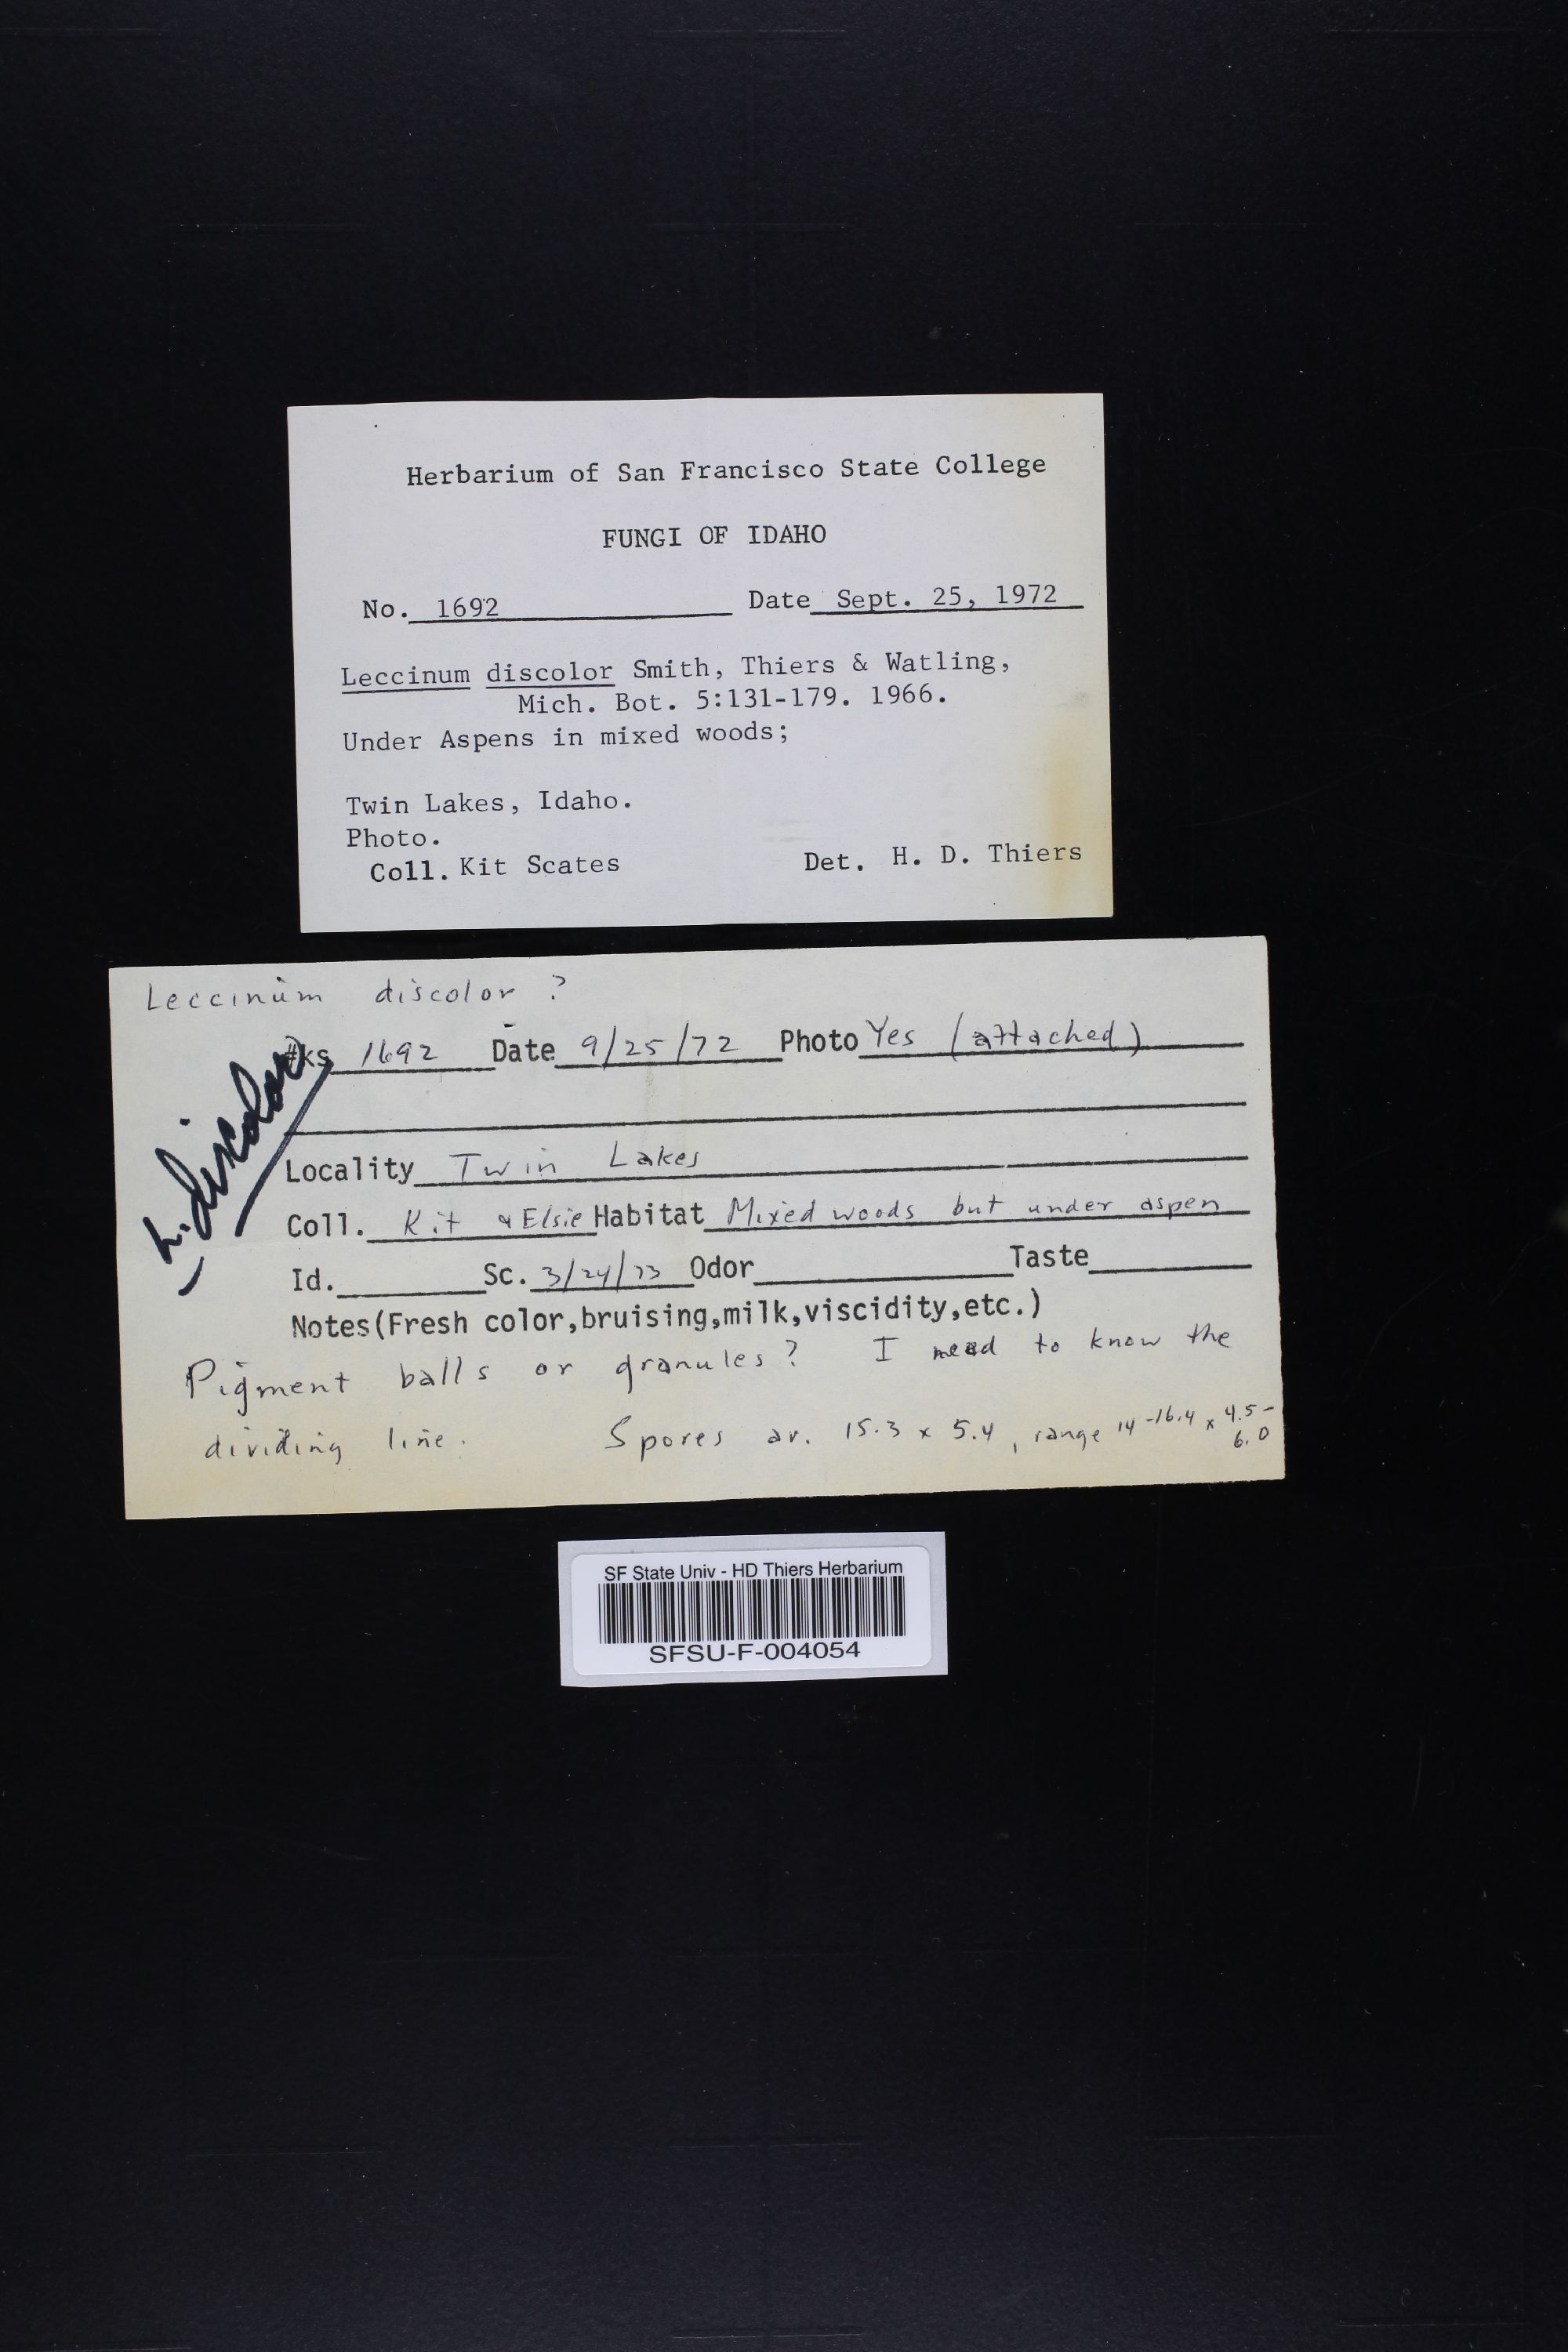 Herbarium of San Francisco State College
FUNGI OF IDAHO
No. 1692 Date Sept. 25, 1972
Leccinum discolor Smith, Thiers & Watling,
Mich. Bot. 5:131-179. 1966.
Under Aspens in mixed woods;
Twin Lakes, Idaho.
Photo.
Coll. Kit Scates Det. H. D. Thiers
Leccinum discolor ?
#ks 1692 Date 9/25/72 Photo Yes (attached)
L. discolor
Locality Twin Lakes
Coll. Kit & Elsie Habitat Mixed woods but under aspen
Id. Sc. 3/24/73 Odor Taste
Notes(Fresh color,bruising,milk,viscidity,etc.)
Pigment balls or granules? I need to know the
dividing line. Spores av. 15.3 x 5.4, range 14-16.4 x 4.5-
6.0
SF State Univ - HD Thiers Herbarium
SFSU-F-004054